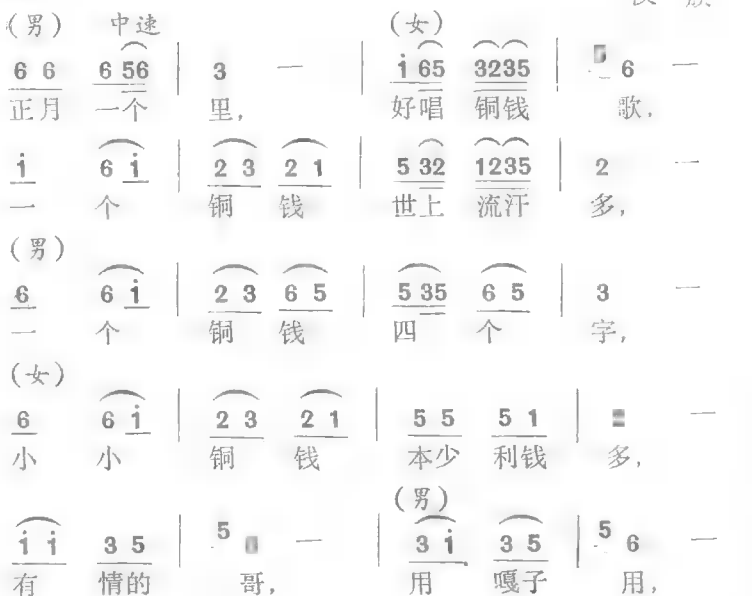 (男) 中速 (女)
6 6 6 56 | 3 — | i 65 3235 | 6 —
正月 一个 里, 好唱 铜钱 歌,
i 6 i | 2 3 2 1 | 5 32 1235 | 2 —
一 个 铜 钱 世上 流汗 多,
(男)
6 6 i | 2 3 6 5 | 5 35 6 5 | 3 —
一 个 铜 钱 四 个 字,
(女)
6 6 i | 2 3 2 1 | 5 5 5 1 | —
小 小 铜 钱 本少 利钱 多,
(男)
i i 3 5 | 5 — | 3 i 3 5 | 5 6 —
有 情的 哥, 用 嘎子 用,